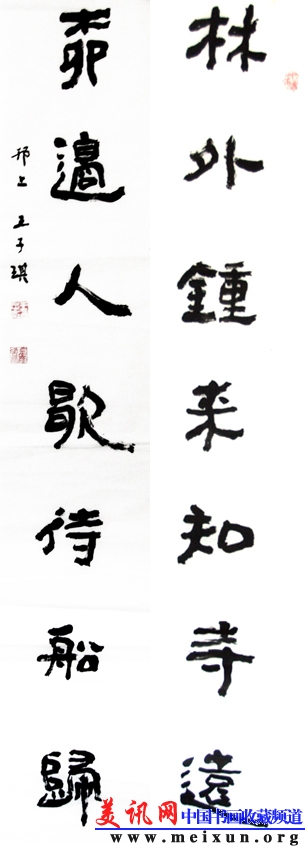 林外鍾来知寺遠
柳邊人歇待船歸
邗上 王子琪
美讯网 中国书画收藏频道
www.meixun.org